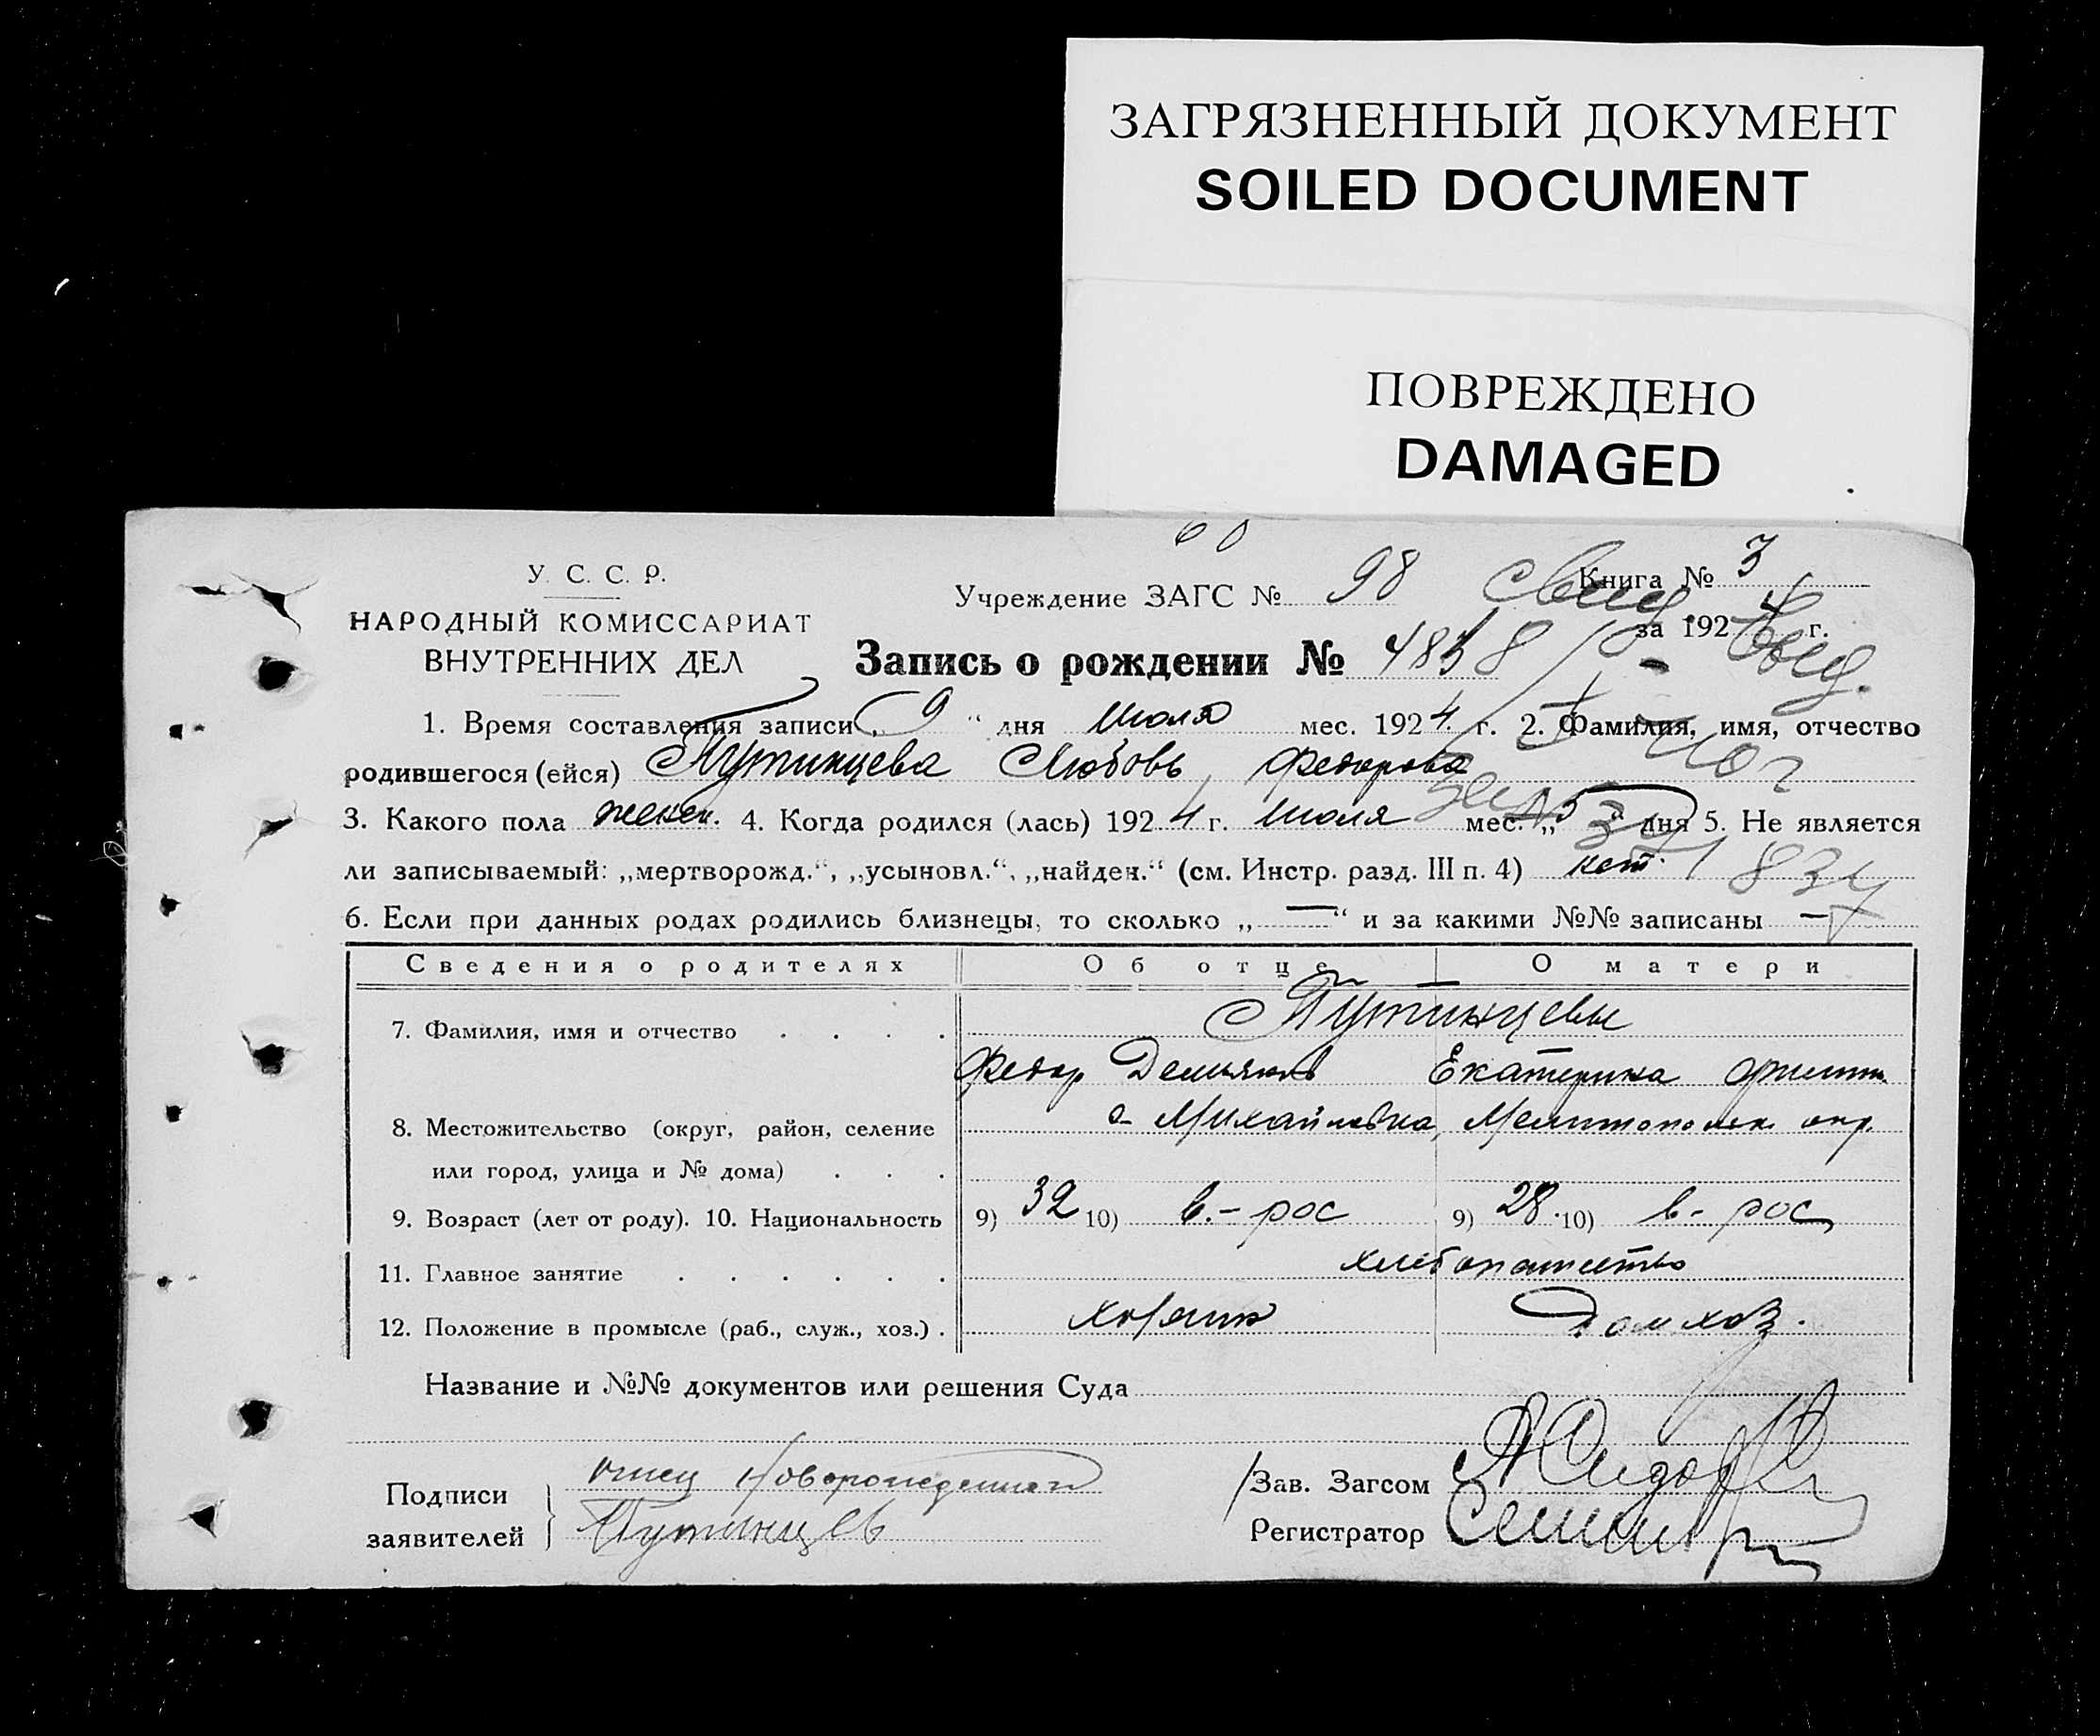 ЗАГРЯЗНЕННЫЙ ДОКУМЕНТ
SOILED DOCUMENT
ПОВРЕЖДЕНО
DAMAGED
60
У. С. С. Р.
НАРОДНЫЙ КОМИССАРИАТ
ВНУТРЕННИХ ДЕЛ
Учреждение ЗАГС № 98
Книга № 3
за 1924 г.
Запись о рождении №
1. Время составления записи „9“ дня Июля мес. 1924 г. 2. Фамилия, имя, отчество
родившегося (ейся) Путинцева Любовь Федорова
3. Какого пола женск. 4. Когда родился (лась) 1924 г. Июля мес. „5“ дня 5. Не является
ли записываемый: „мертворожд.“, „усыновл.“, „найден.“ (см. Инстр. разд. III п. 4) нет
6. Если при данных родах родились близнецы, то сколько „—“ и за какими №№ записаны —
Сведения о родителях Об отце О матери
7. Фамилия, имя и отчество . . . . Путинцевы
Федор Демьянов Екатерина
8. Местожительство (округ, район, селение с Михайловка, Мелитопольск. окр.
или город, улица и № дома) . . .
9. Возраст (лет от роду). 10. Национальность 9) 32 10) в.-рос 9) 28 10) в-рос
11. Главное занятие . . . . . . хлебопашество
12. Положение в промысле (раб., служ., хоз.) . хозяин Домхоз.
Название и №№ документов или решения Суда
Подписи заявителей отец новорожденной
Путинцев
Зав. Загсом
Регистратор